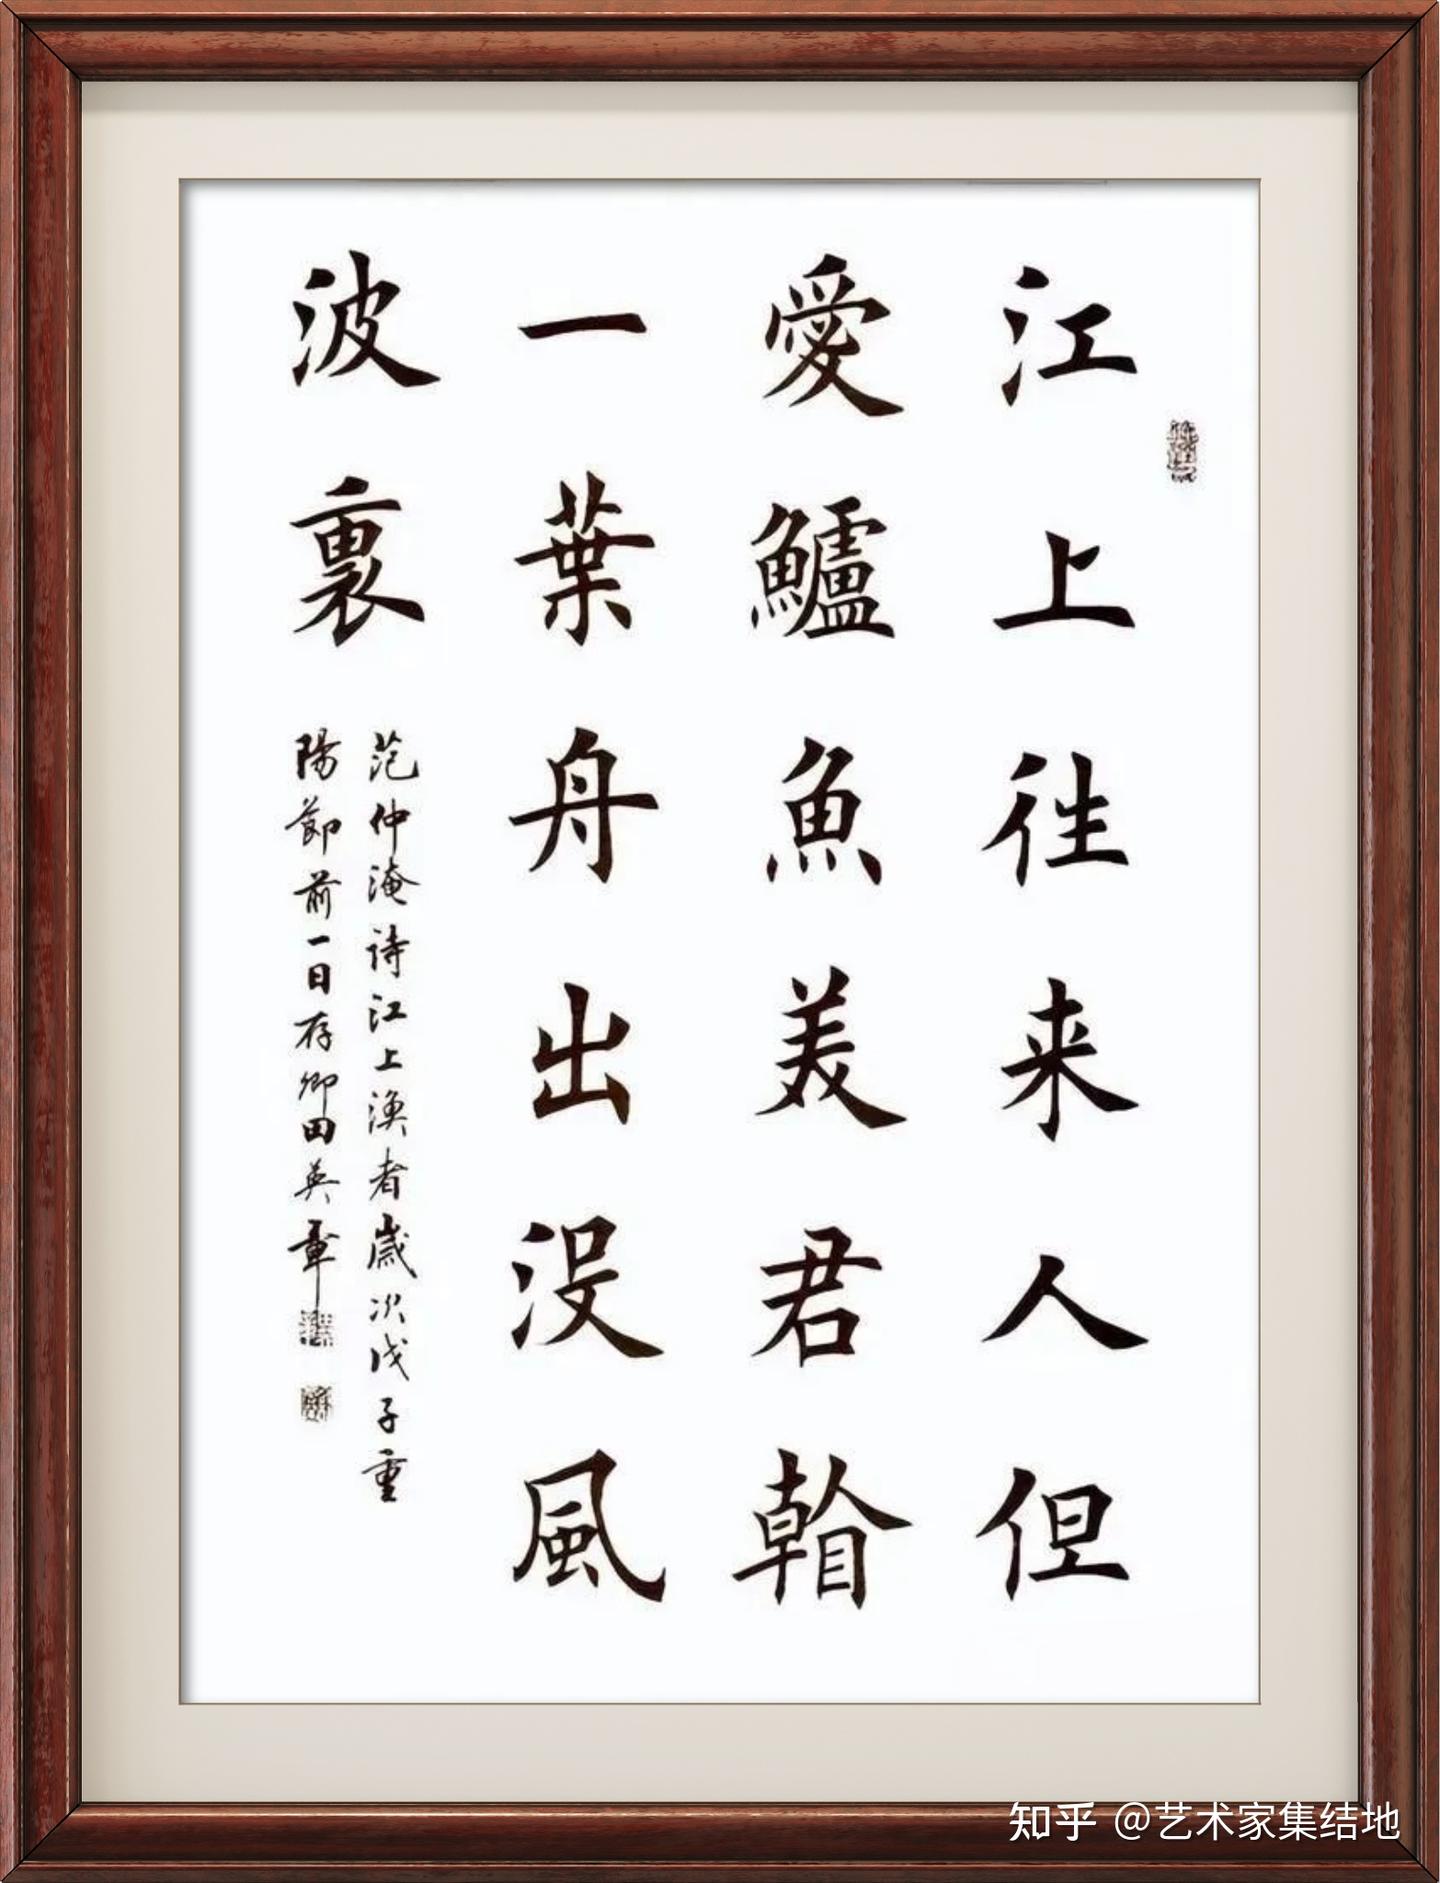 江上往来人但
愛鱸魚美君看
一葉舟出没風
波裏
范仲淹詩江上漁者歲次戊子重
陽節前一日存卿田英章
知乎 @艺术家集结地